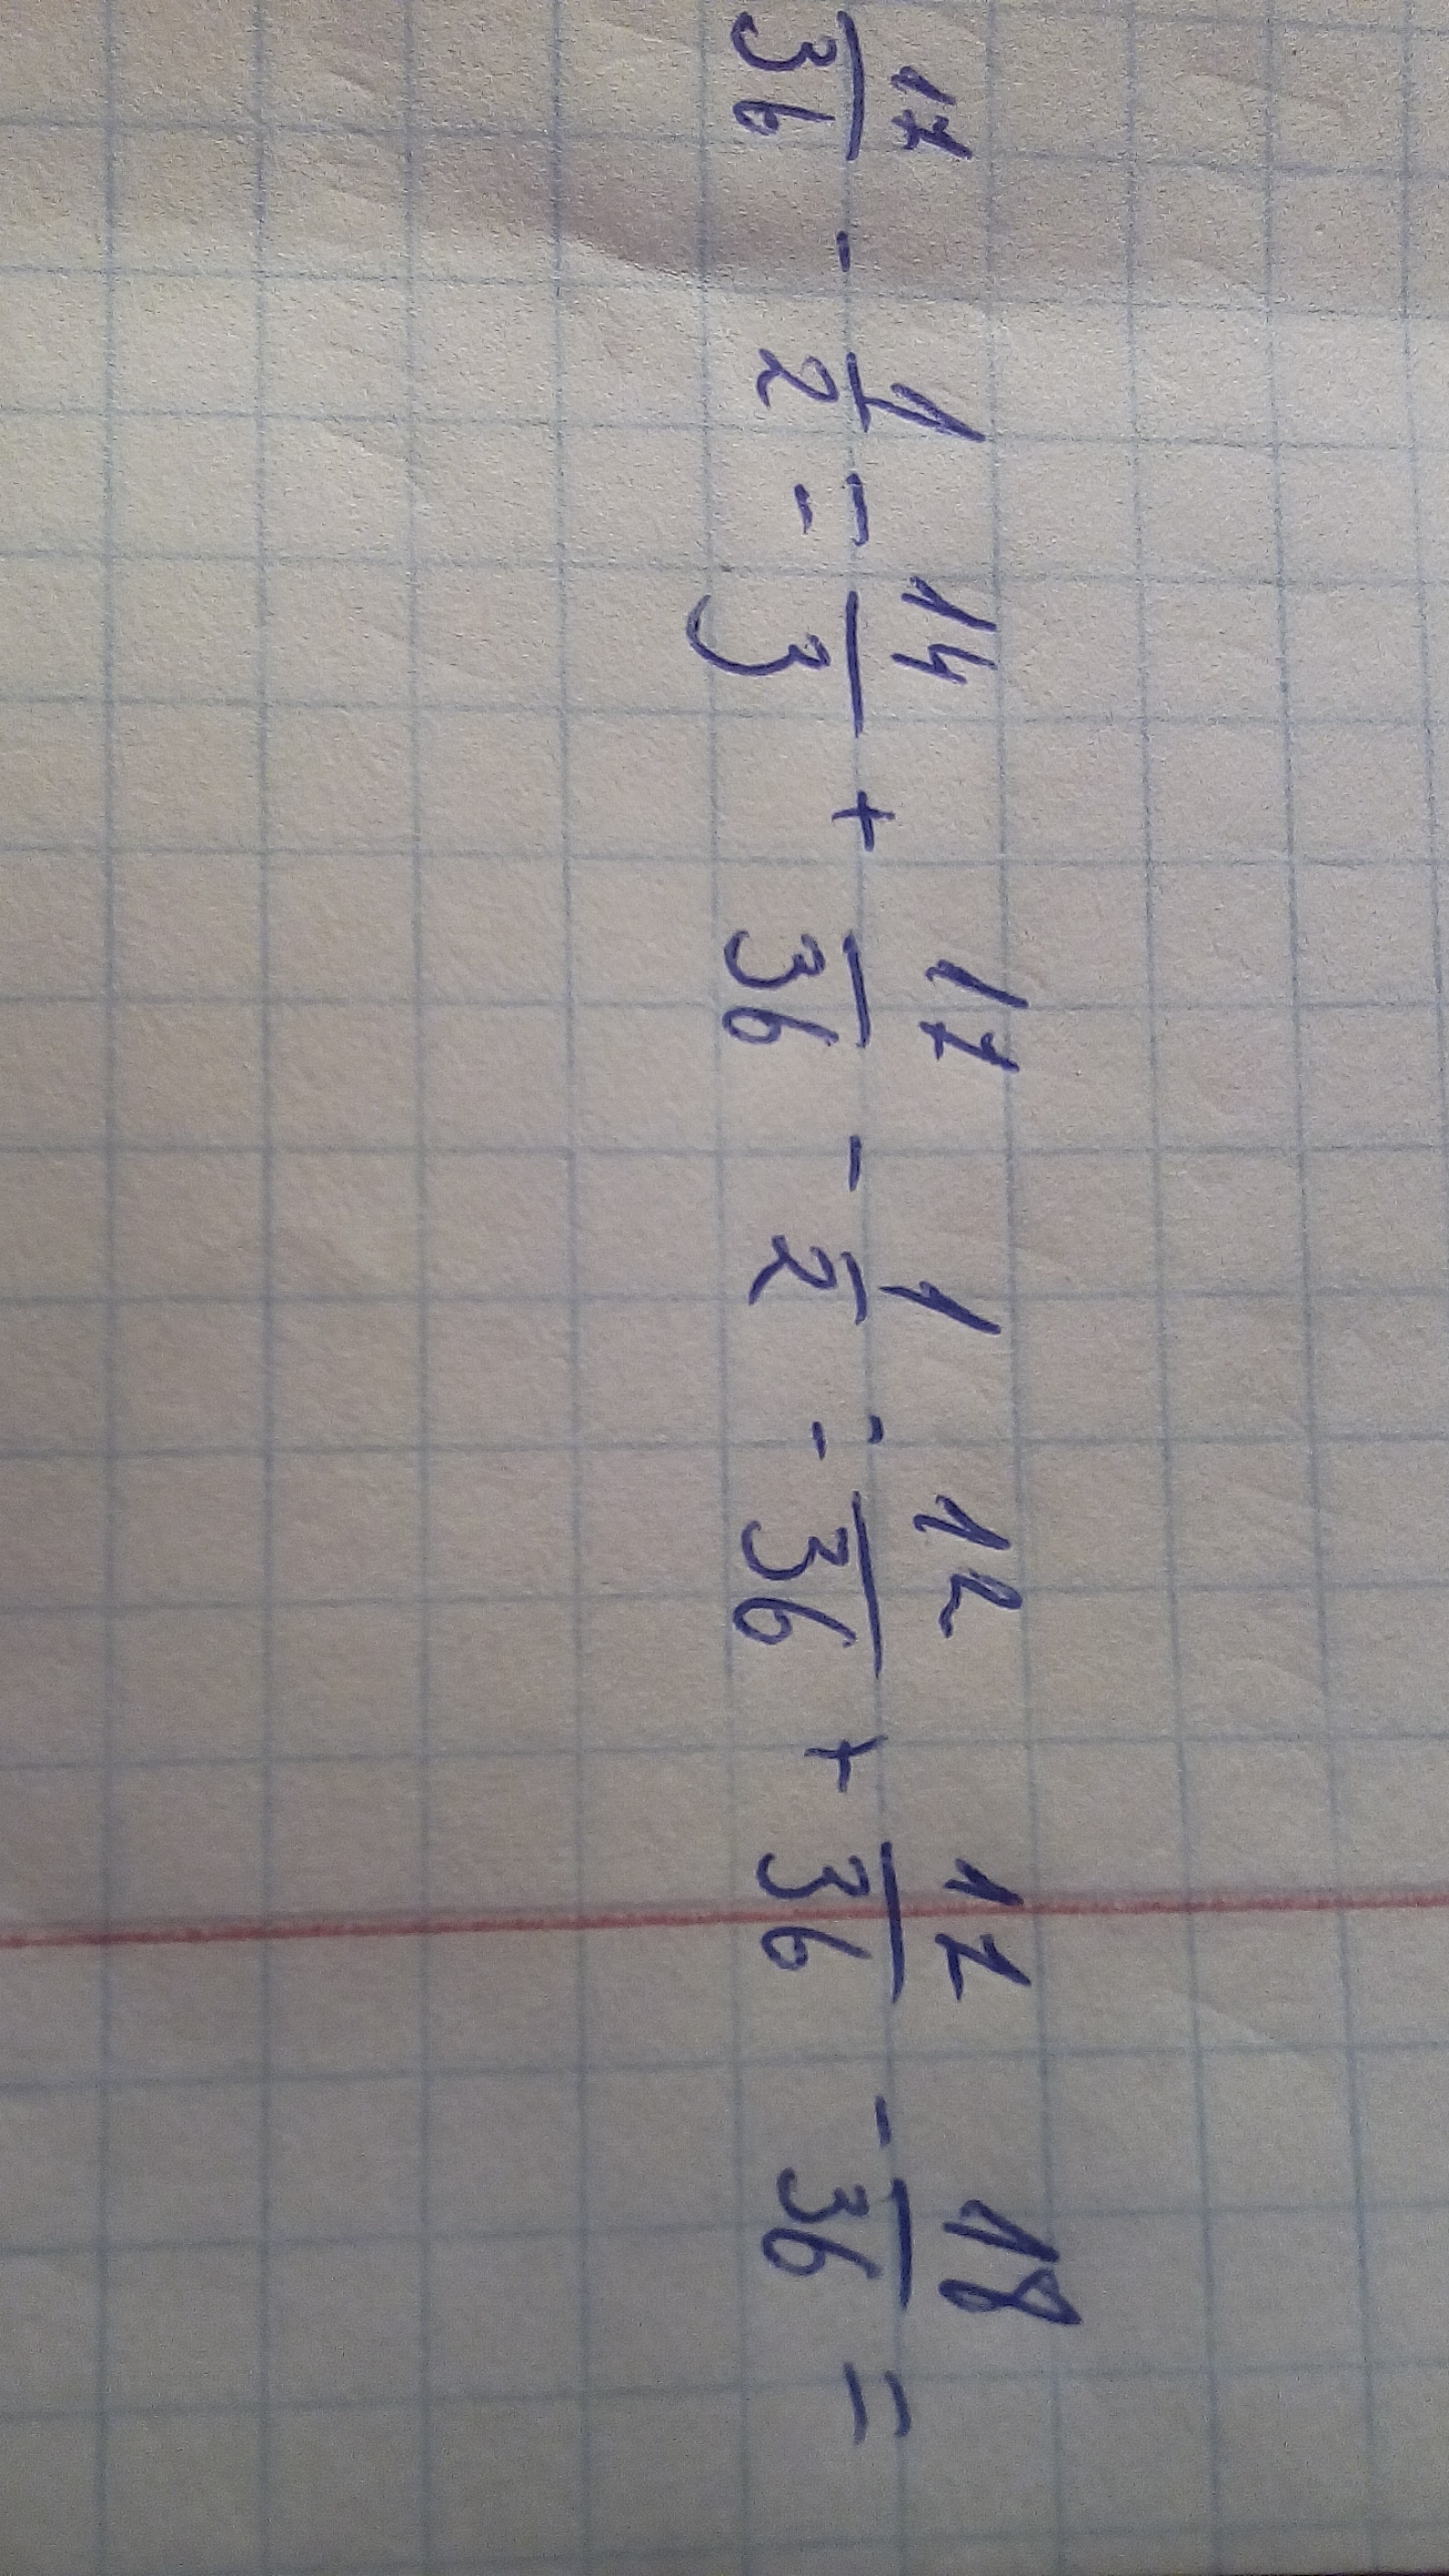 17/36 - 1/2 = 14/3 + 17/36 - 1/2 = 12/36 + 17/36 - 18/36 =